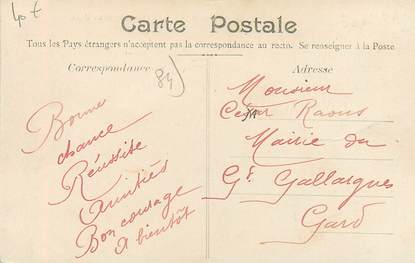 40 €
Carte Postale
Tous les Pays étrangers n'acceptent pas la correspondance au recto. Se renseigner à la Poste.
Correspondance
Adresse
84)
Bonne
chance
Réussite
Amitiés
Bon courage
A bientôt
Monsieur
César Raous
Mairie du
Gd. Gallargues
Gard